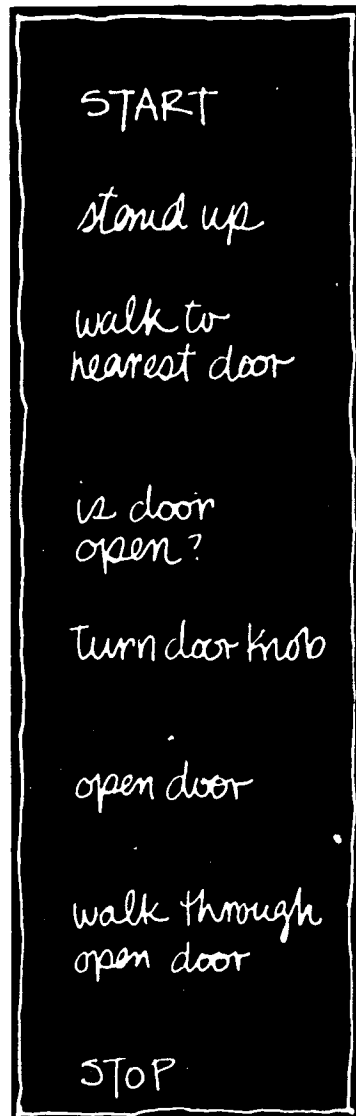 START
stand up
walk to
nearest door
is door
open?
turn door knob
open door
walk through
open door
STOP